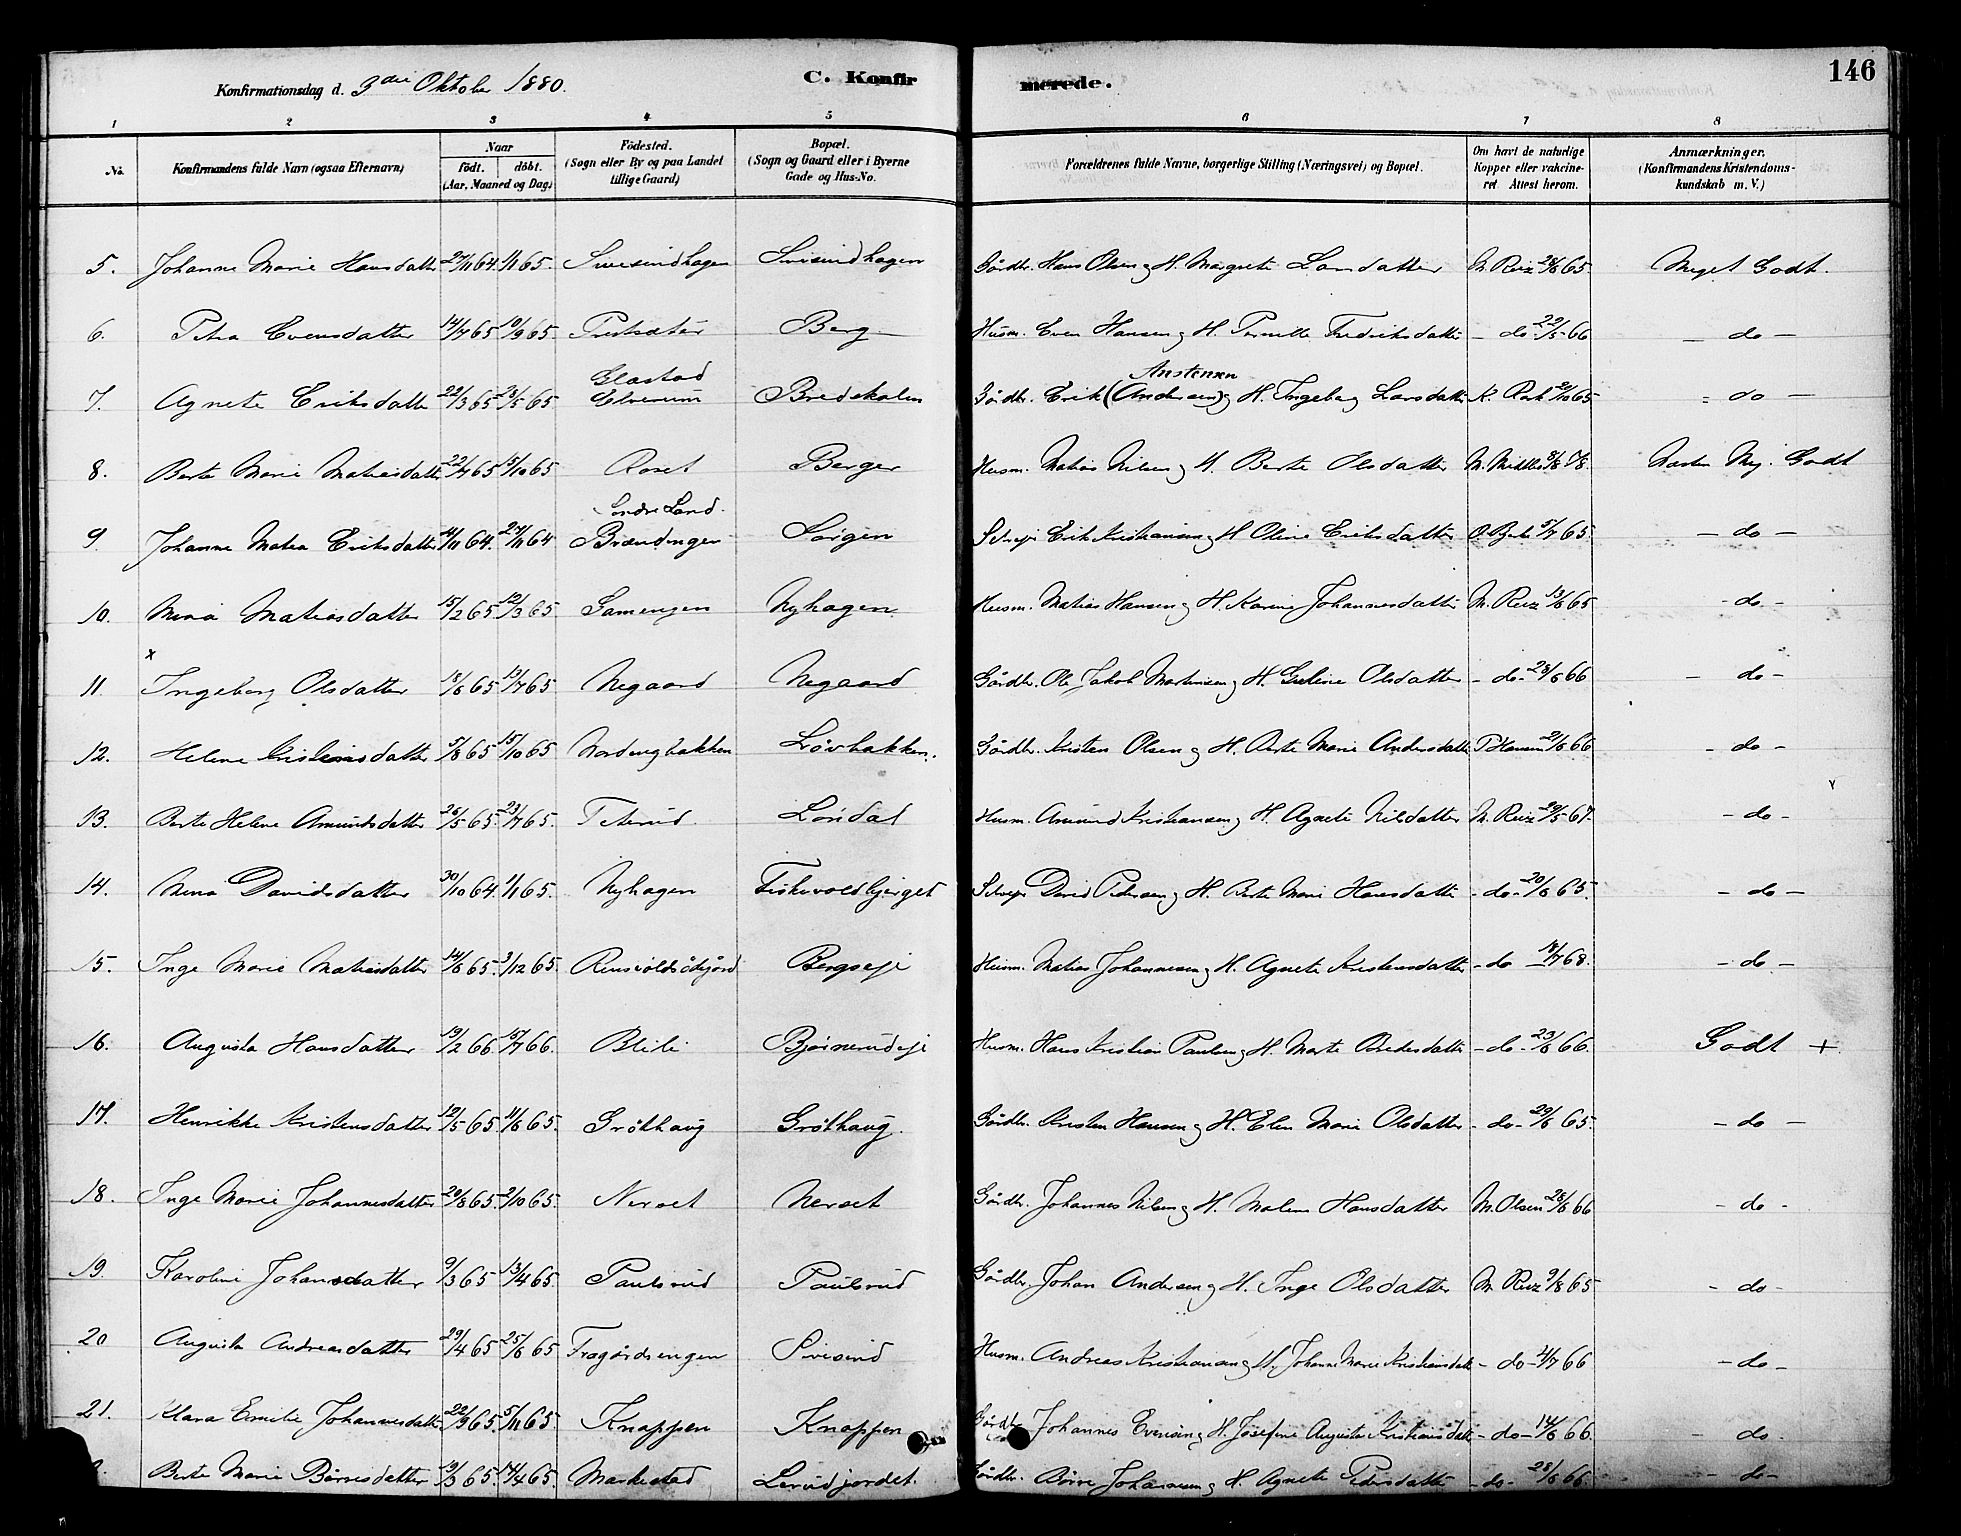 146
Konfirmationsdag d. 3die Oktober 1880. C. Konfirmerede.
1 2 3 4 5 6 7 8
No. Konfirmandens fulde Navn (ogsaa Efternavn) Naar födt. döbt. (Aar, Maaned og Dag) Födested. (Sogn eller By og paa Landet tillige Gaard) Bopæl. (Sogn og Gaard eller i Byerne Gade og Hus-No. Forældrenes fulde Navne, borgerlige Stilling (Næringsvei) og Bopæl. Om havt de naturlige Kopper eller vakcineret. Attest herom. Anmærkninger. (Konfirmandens Kristendomskundskab m. V.)
5. Johanne Marie Hansdatter 27/11 64. 1/1 65. Sivesindhagen Sivisindhagen Gårdbr. Hans Olsen og H. Margrete Larsdatter M. Reiz 28/6 65 Meget Godt.
6. Petra Evensdatter 14/7 65 10/9 65. Prestsæter Berg Husm. Even Hansen og H. Pernille Fredriksdatter - do - 22/5 66 - do -
7. Agnete Eriksdatter 22/3 65 25/5 65 Glæstad Elverum Bredskalen Gårdbr. Erik (Andersen) Anstensen og H. Ingeborg Larsdatter 65 - do -
8. Berte Marie Matiasdatter 22/7 65 15/10 65 Roset Berger Husm. Matias Nilsen og H. Berte Olsdatter Næsten Mg. Godt
9. Johanne Matea Eriksdatter 64. 27/11 64 Søndre Land. Brændingen Sørgen Selvejer Erik Kristiansen og H. Oline Eriksdatter 65. - do -
10. Mina Matiasdatter 15/2 65 12/3 65 Gamengen Nyhagen Husm. Matias Hansen og H. Karine Johannesdatter M. Reiz 13/6 65 - do -
x
11. Ingeborg Olsdatter 18/6 65 65 Negaard Negaard. Gårdbr. Ole Jakob Martinsen og H. Guline Olsdatter - do - 28/6 66 - do -
12. Helene Kristensdatter 5/8 65 15/10 65 Nordengbakken Løvbakken. Gårdbr. Kristen Olsen og H. Berte Marie Andersdatter P. Hansen 21/6 66 - do -
13. Berte Helene Amundsdatter 26/5 65 23/7 65. Teterud. Løndal Husm. Amund Kristiansen og H. Agnete Nilsdatter M. Reiz 29/5 67. - do -
14. Mina Davidsdatter 30/10 64. 1/1 65. Nyhagen Fiskevoldbjerget Selvejer David Pedersen og H. Berte Marie Hansdatter - do - 20/6 65. - do -
15. Inge Marie Matiasdatter 14/6 65. 3/12 65 Bergseje Husm. Matias Johannesen og H. Agnete Kristensdatter - do - 68. - do -
16. Augusta Hansdatter 19/2 66. 15/7 66. Blili Bjørnerudeje Husm. Hans Kristian Paulsen og H. Marte Bredesdatter - do - 23/6 66. Godt +
17. Henrikke Kristensdatter 12/5 65. 11/6 65. Gröthaug Gröthaug. Gårdbr. Kristen Hansen og H. Elen Marie Olsdatter - do - 29/6 65. - do -
18. Inge Marie Johannesdatter 20/8 65. 2/10 65. Nerset Nerset Gårdbr. Johannes Nilsen og H. Malene Hansdatter M. Olsen 28/6 66 - do -
19. Karoline Johansdatter 9/3 65 13/4 65. Paulsrud Paulsrud Gårdbr. Johan Andersen og H. Inge Olsdatter M. Reiz 9/8 65 - do -
20 Augusta Andreasdatter 29/4 65 25/6 65 Fragårdsengen Sivesind Husm. Andreas Kristiansen og H. Johanne Marie Kristiansdatt - do - 4/7 66 - do -
21. Klara Emilie Johannesdatter 22/9 65. 5/11 65. Knappen Knappen Gårdbr. Johannes Evensen og H. Josefine Augusta Kristiansdatt - do - 14/6 66. - do -
Berte Marie Børresdatter 65. 65. Markestad Lerudjordet. Gårdbr. Børre Johannesen og H. Agnete Pedersdatter - do - 28/6 66. - do -